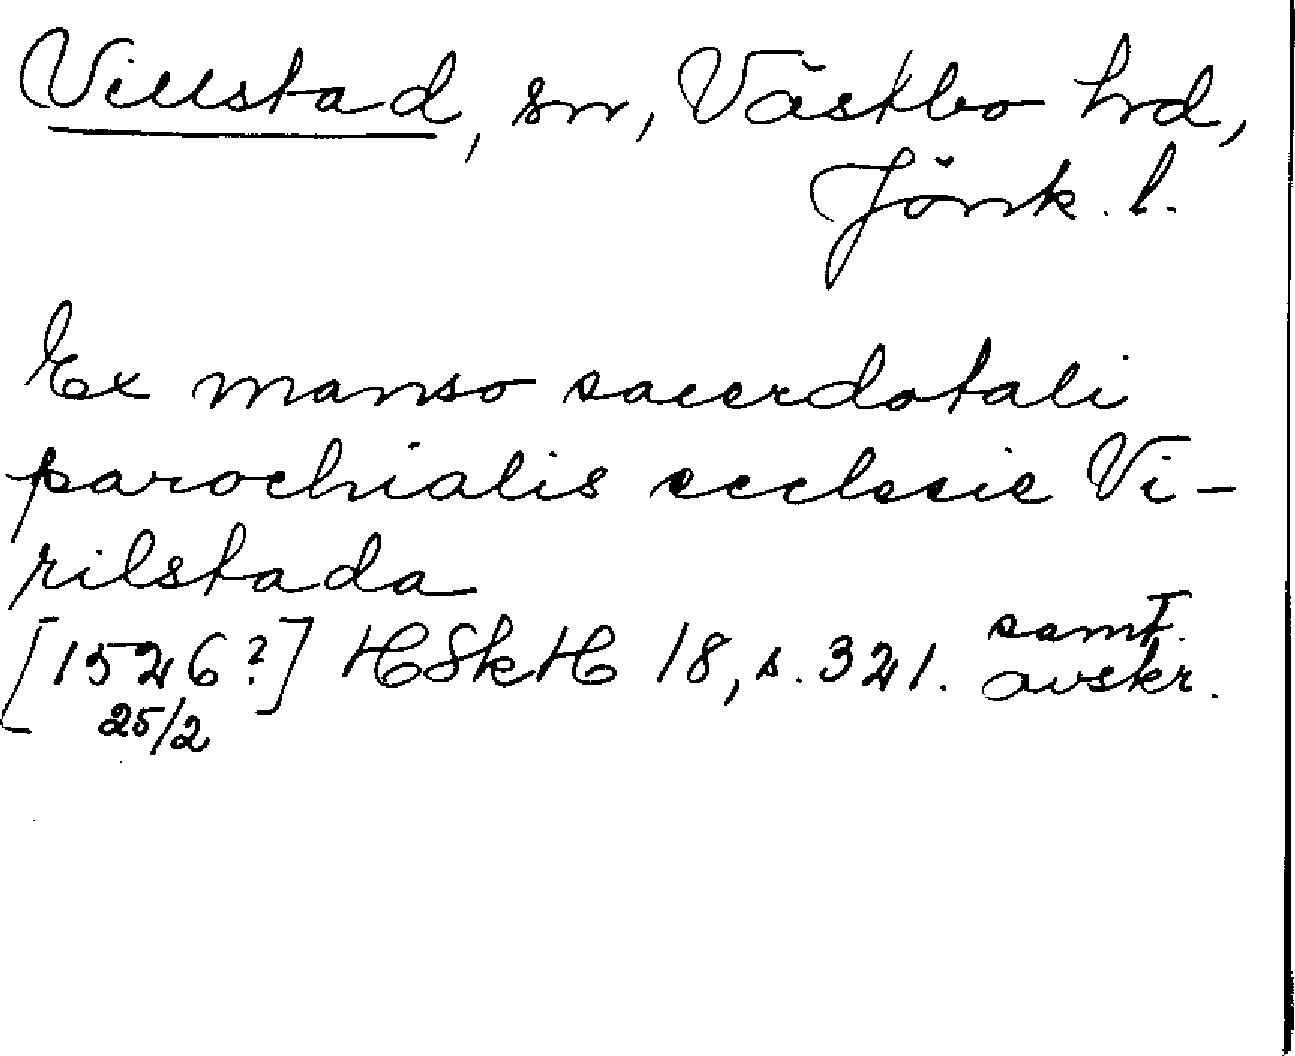 Villstad, sn, Västbo hd,
Jönk. l.
Ex manso sacerdotali
parochialis ecclesie Vi-
rilstada
[1526?] HSkH 18, s. 321. samt. avskr.
25/2